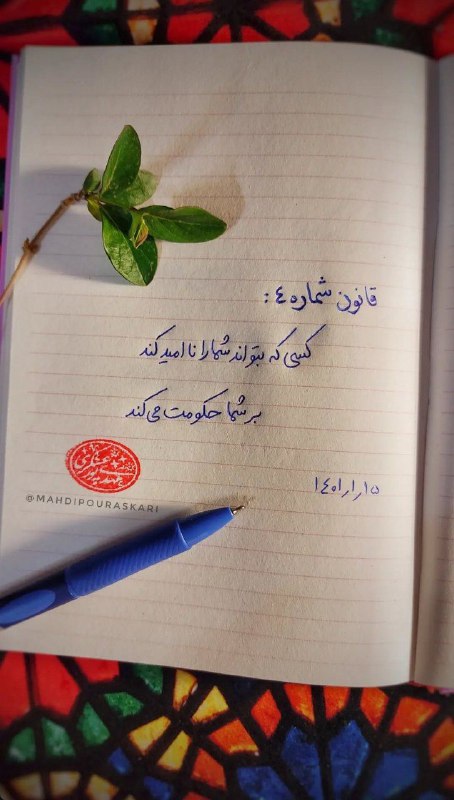 قانون شماره ٤:
کسی که بتواند شما را ناامید کند
بر شما حکومت می‌کند
@MAHDIPOURASKARI